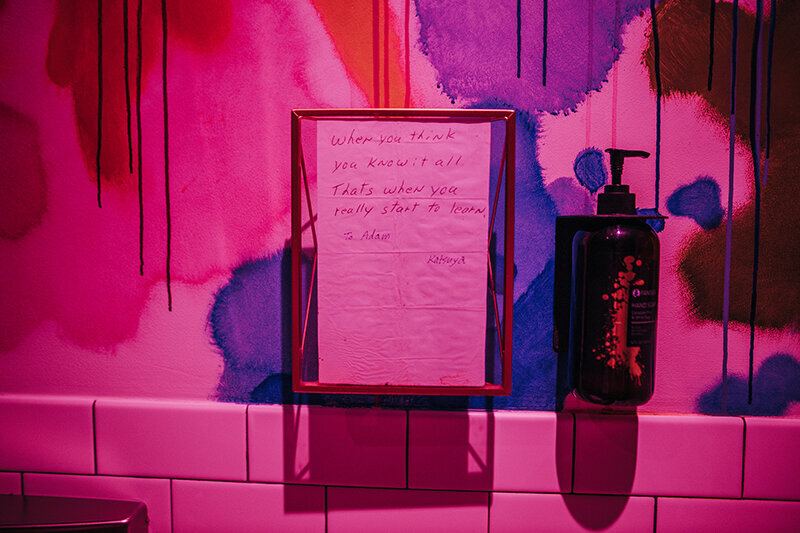 When you think
you know it all
Thats when you
really start to learn.
To Adam
Katsuya
HAND SOAP